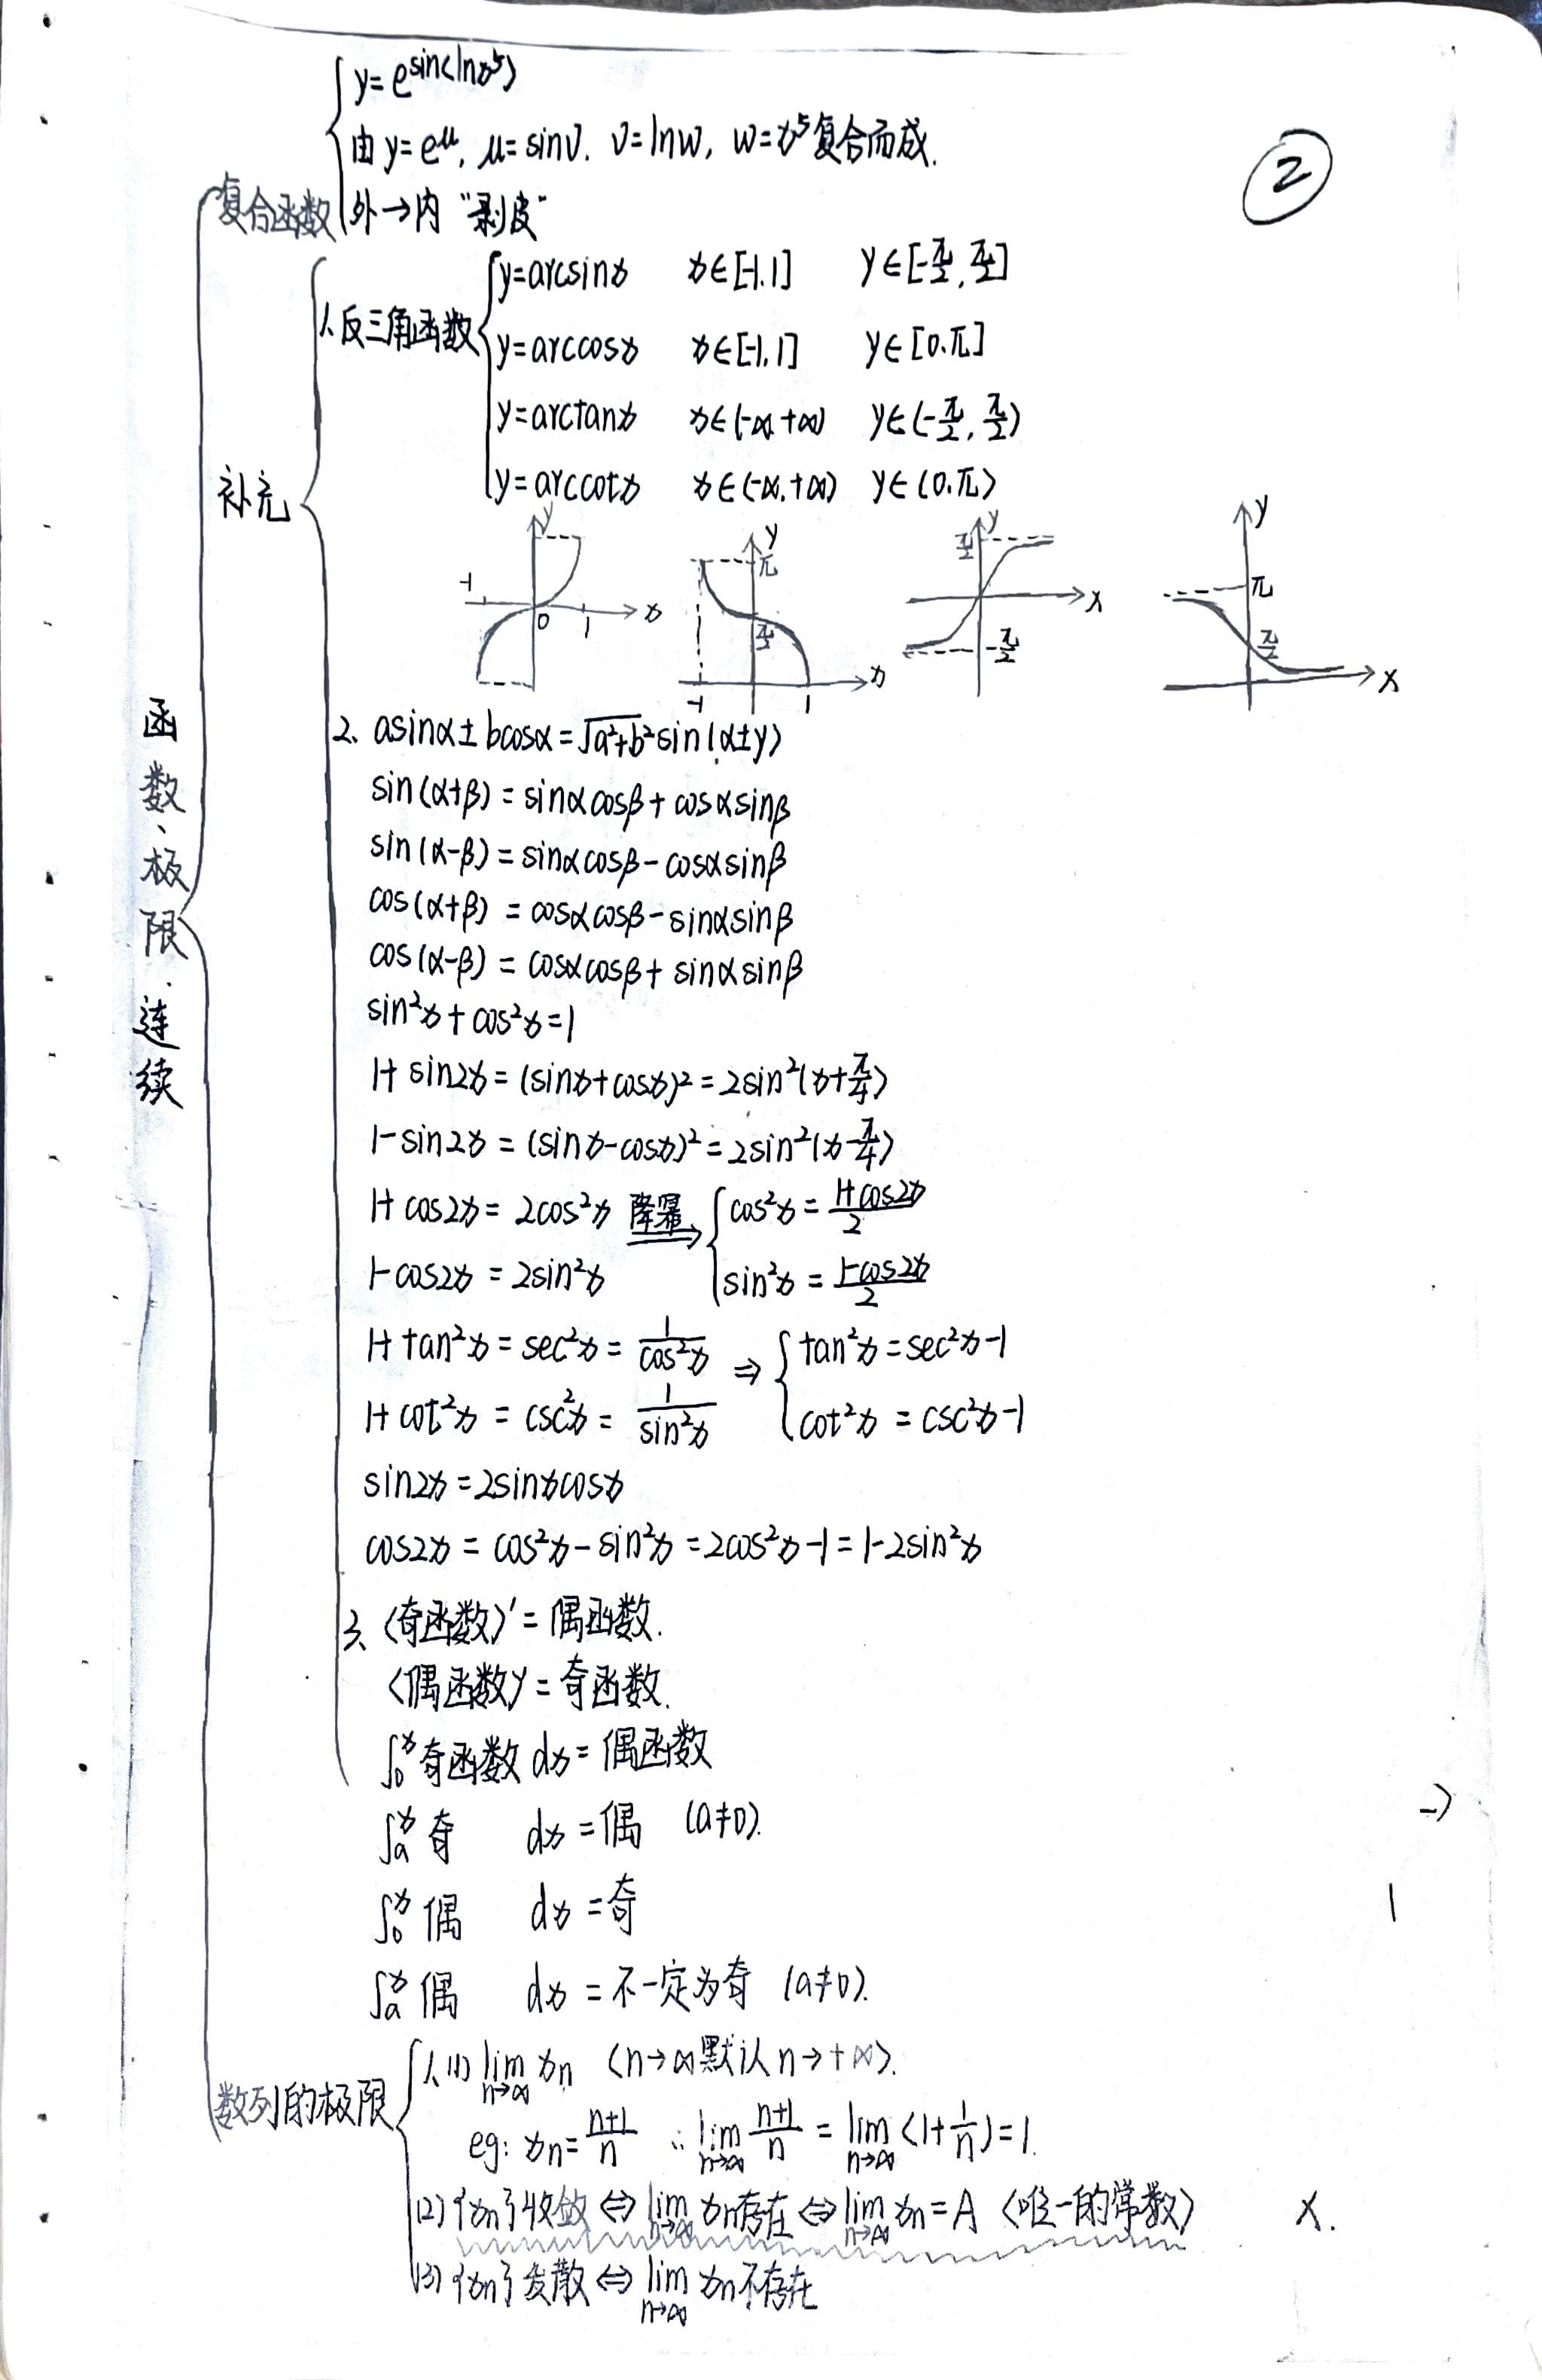 ②
函数、极限、连续
复合函数
y=e^sin(lnx⁵)
由y=e^μ, μ=sinν. ν=lnw, w=x⁵复合而成.
外→内 "剥皮"
补充
1.反三角函数
y=arcsinx x∈[-1.1] y∈[-π/2, π/2]
y=arccosx x∈[-1,1] y∈[0.π]
y=arctanx x∈(-∞,+∞) y∈(-π/2, π/2)
y=arccotx x∈(-∞.+∞) y∈(0.π)
y -1 0 1 x
y π π/2 -1 1 x
y π/2 -π/2 x
y π π/2 x
2. asinα±bcosα=√a²+b² sin(α±y)
sin(α+β)=sinαcosβ+cosαsinβ
sin(α-β)=sinαcosβ-cosαsinβ
cos(α+β)=cosαcosβ-sinαsinβ
cos(α-β)=cosαcosβ+sinαsinβ
sin²x+cos²x=1
1+sin2x=(sinx+cosx)²=2sin²(x+π/4)
1-sin2x=(sinx-cosx)²=2sin²(x-π/4)
1+cos2x=2cos²x 降幂→ cos²x=(1+cos2x)/2
1-cos2x=2sin²x sin²x=(1-cos2x)/2
1+tan²x=sec²x=1/cos²x ⇒ tan²x=sec²x-1
1+cot²x=csc²x=1/sin²x cot²x=csc²x-1
sin2x=2sinxcosx
cos2x=cos²x-sin²x=2cos²x-1=1-2sin²x
3、(奇函数)'=偶函数.
(偶函数)'=奇函数.
∫₀ˣ奇函数dx=偶函数
∫ₐˣ奇 dx=偶 (a≠0).
∫₀ˣ偶 dx=奇
∫ₐˣ偶 dx=不一定为奇 (a≠0).
数列的极限
1、(1) lim n→∞ xn (n→∞默认n→+∞).
eg: xn=(n+1)/n ∴ lim n→∞ (n+1)/n = lim n→∞ (1+1/n)=1.
(2) {xn}收敛⇔lim n→∞ xn存在⇔lim n→∞ xn=A (唯一的常数)
(3) {xn}发散⇔lim n→∞ xn不存在